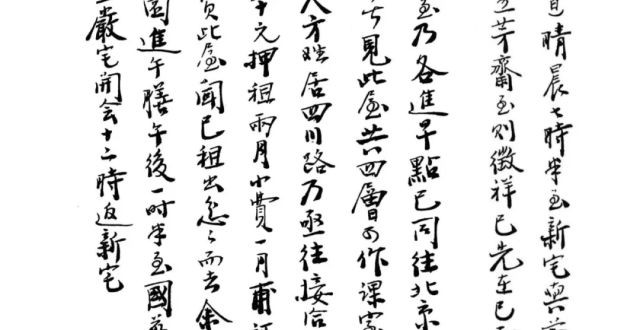 晴晨七時半至新宅與
五芳齋至則徵祥已先在已
至乃各進早點已同往北京
見此屋共四層可作課室
方姓居四川路乃亟往接洽
十元押租兩月小費一月甫
此屋聞已租出怱々而去余
園進午膳午後一時半至國
嚴宅開会十二時返新宅